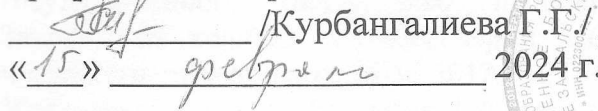 /Курбангалиева Г.Г./
«15» февраля 2024 г.